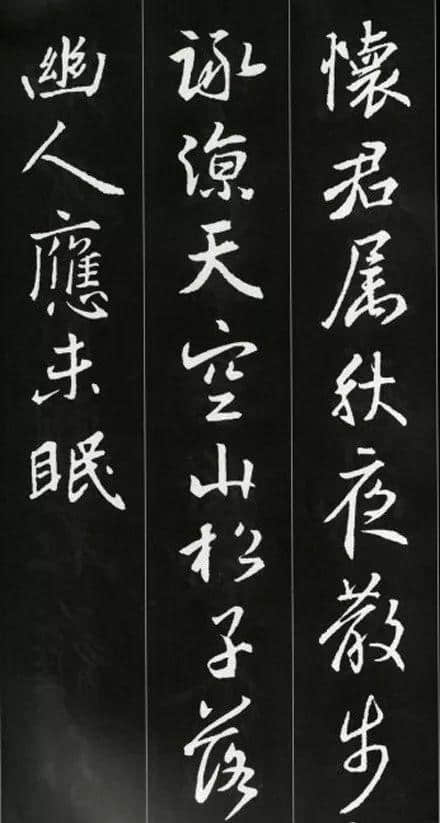 懷君属秋夜散步
詠涼天空山松子落
幽人應未眠